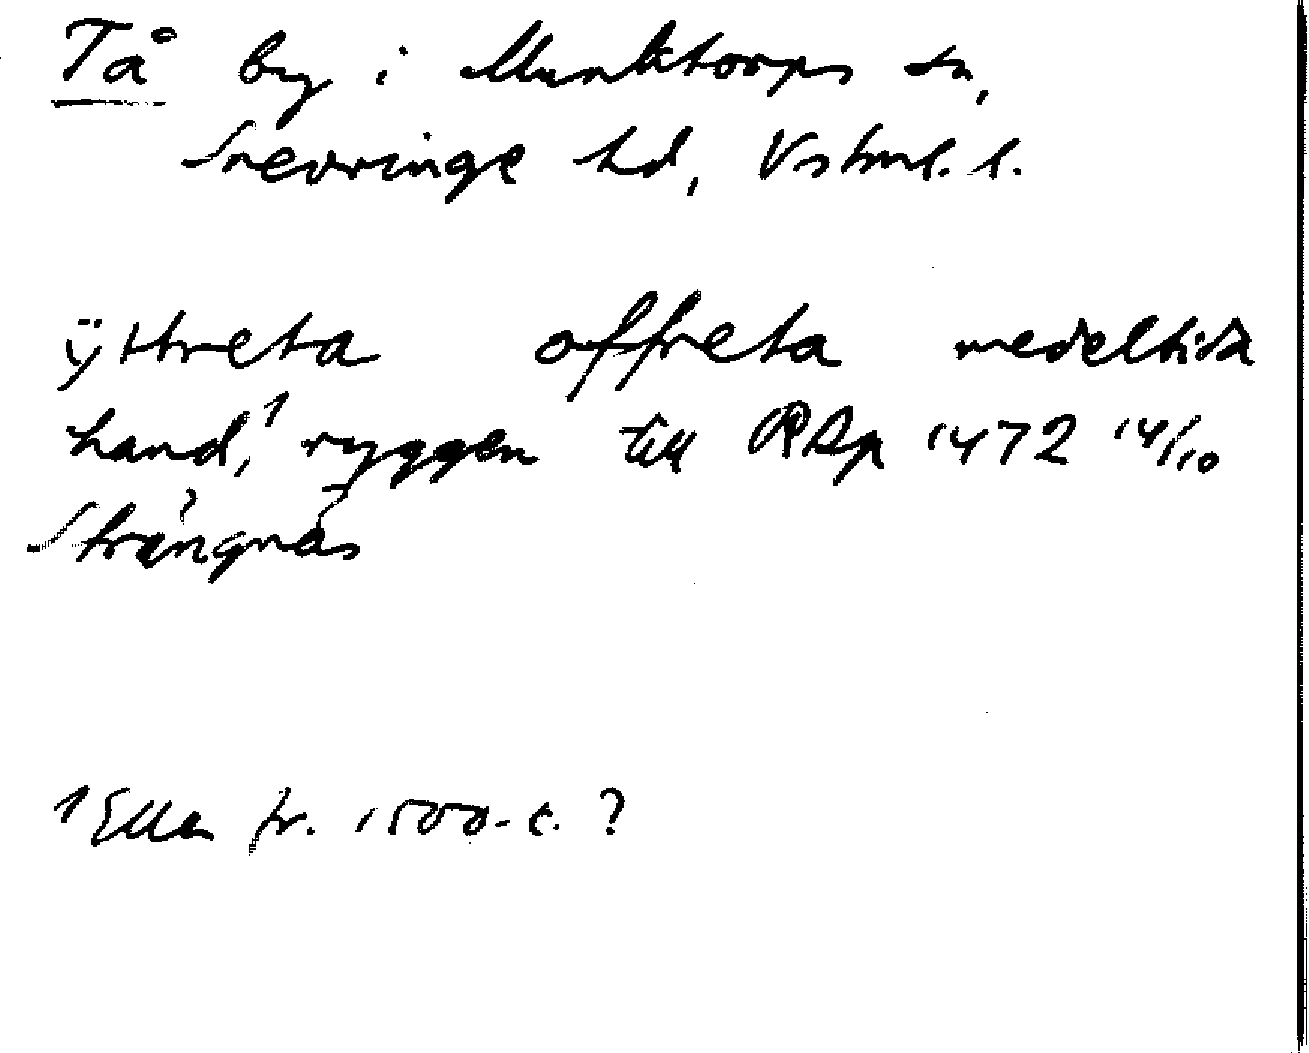 Tå by i Munktorps sn,
Snevringe hd, Vstml. l.
ÿttreta offreta medeltida
hand,¹ ryggen till RAp 1472 14/10
Strängnäs
¹ Eller fr. 1500-t. ?